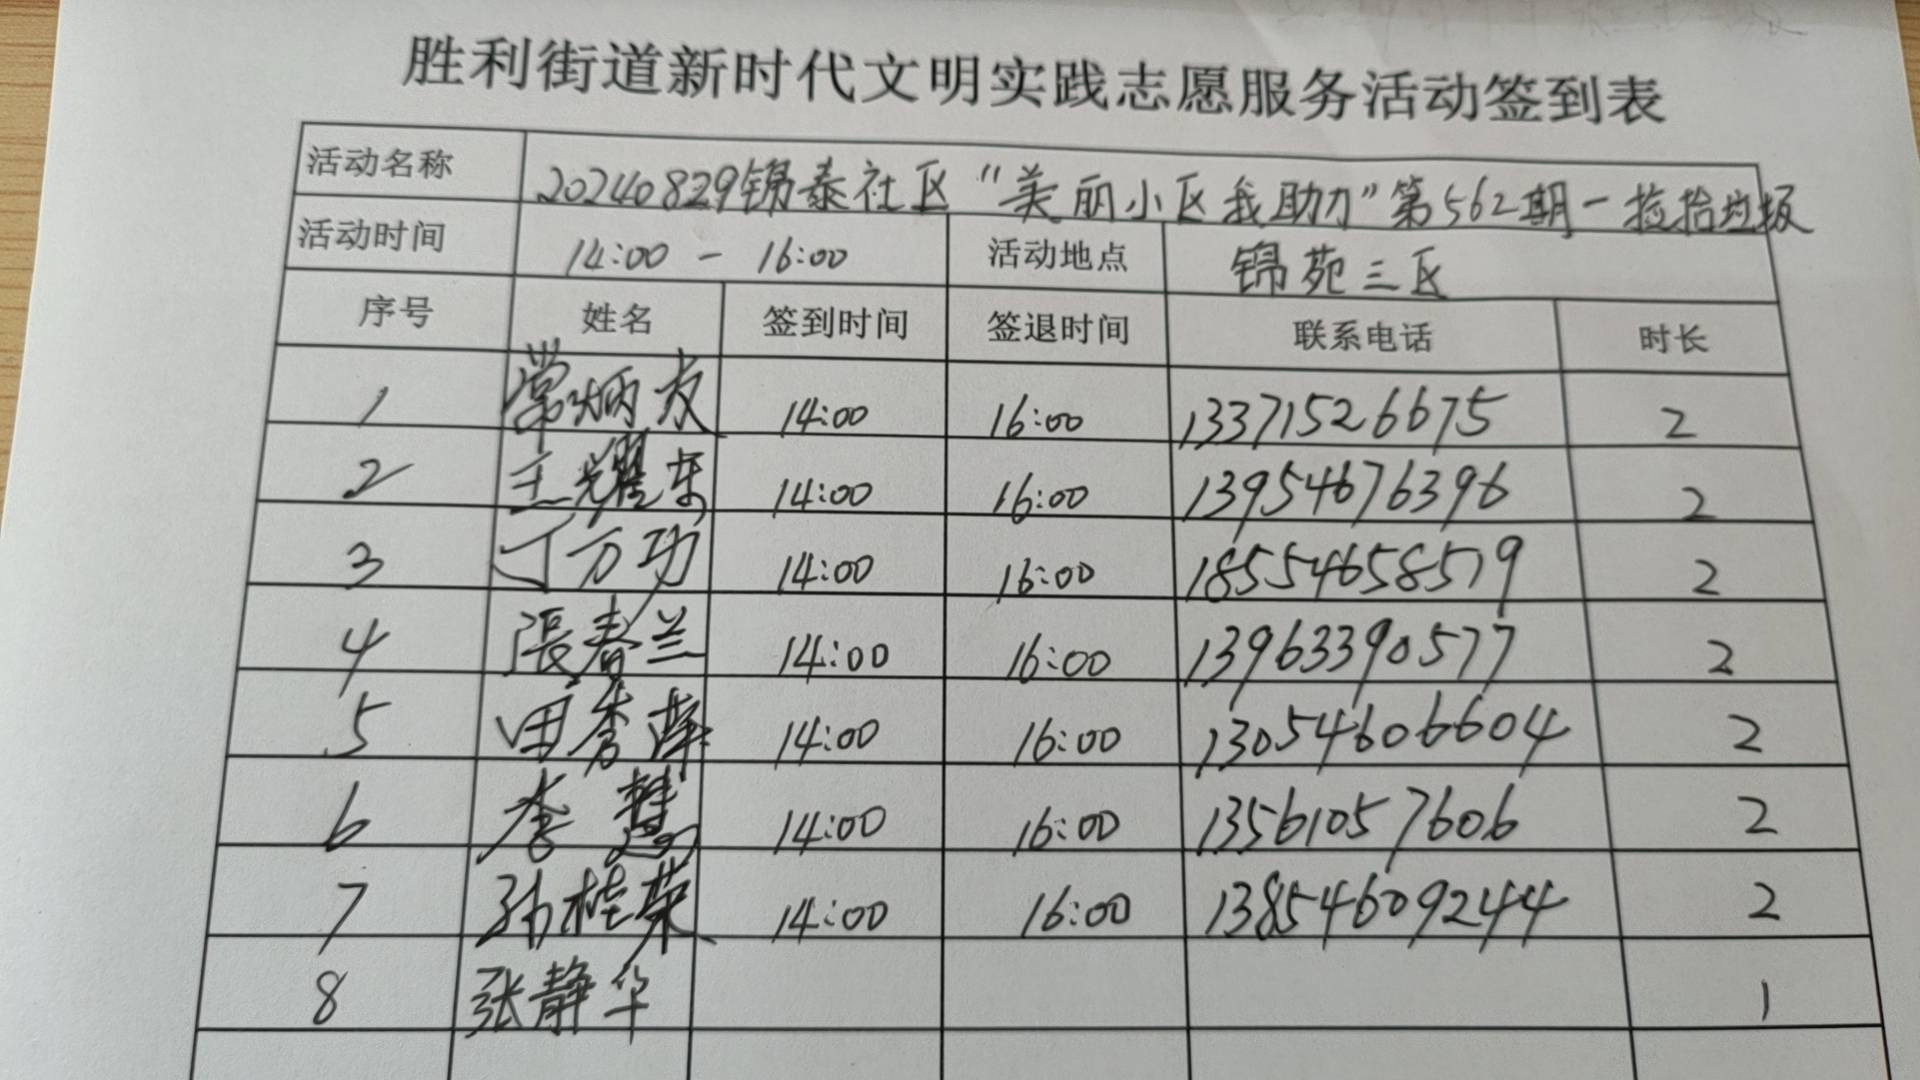 胜利街道新时代文明实践志愿服务活动签到表
活动名称 20240829锦泰社区“美丽小区我助力”第562期-捡拾垃圾
活动时间 14:00 - 16:00 活动地点 锦苑三区
序号 姓名 签到时间 签退时间 联系电话 时长
1 常炳友 14:00 16:00 13371526675 2
2 王耀东 14:00 16:00 13954676396 2
3 丁万功 14:00 16:00 18554658579 2
4 張春兰 14:00 16:00 13963390577 2
5 田秀萍 14:00 16:00 13054606604 2
6 李慧 14:00 16:00 13561057606 2
7 孙桂荣 14:00 16:00 13854609244 2
8 张静华 1